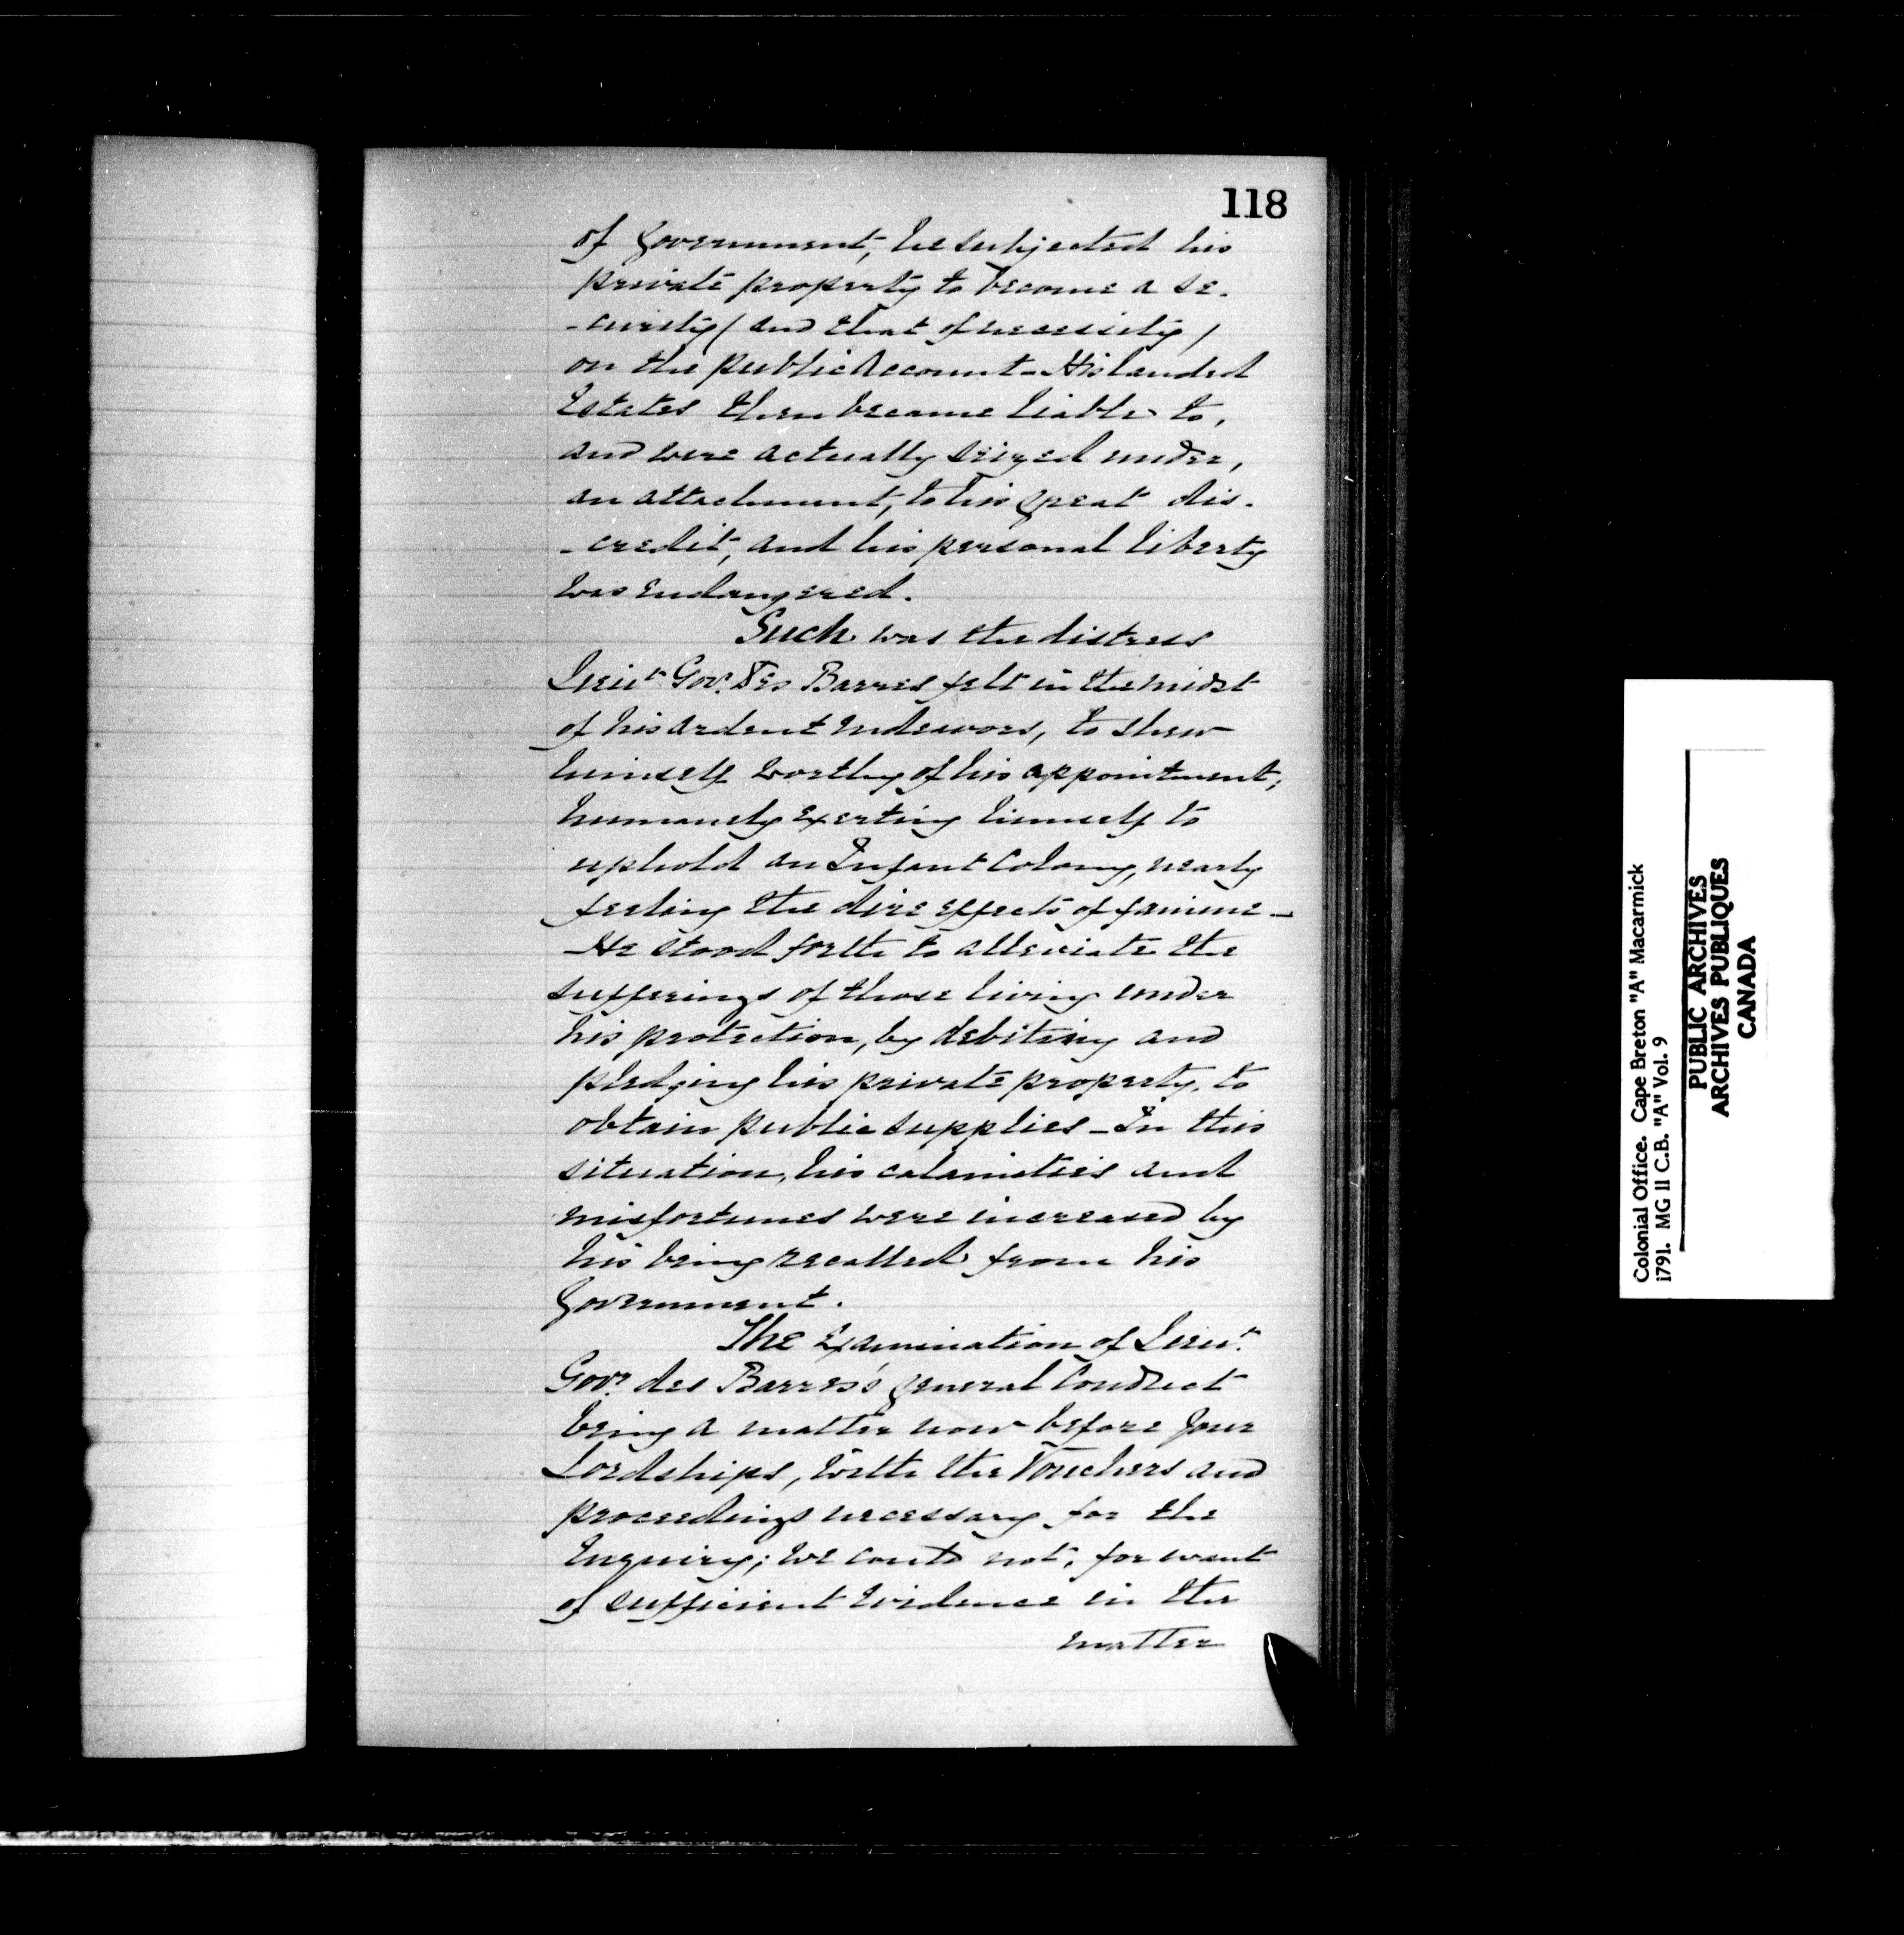 118
of Government, he subjected his
private property to become a se-
-curity (and that of necessity)
on the public Account - His landed
Estates then became liable to,
and were actually seized under,
an attachment, to his great dis-
-credit, and his personal liberty
was endangered.
Such was the distress
Lieut. Gov. Des Barres felt in the midst
of his ardent endeavors, to shew
himself worthy of his appointment;
humanely exerting himself to
uphold an Infant Colony, nearly
feeling the dire effects of famine -
- He stood forth to alleviate the
sufferings of those living under
his protection, by debiting and
pledging his private property, to
obtain public supplies - In this
situation, his calamities and
misfortunes were increased by
his being recalled from his
Government.
The Examination of Lieut.
Govr. des Barres's general Conduct
being a matter now before your
Lordships, with the Vouchers and
proceedings necessary for the
Inquiry; we could not, for want
of sufficient Evidence in the
matter
Colonial Office. Cape Breton "A" Macarmick
1791. MG 11 C.B. "A" Vol. 9
PUBLIC ARCHIVES
ARCHIVES PUBLIQUES
CANADA